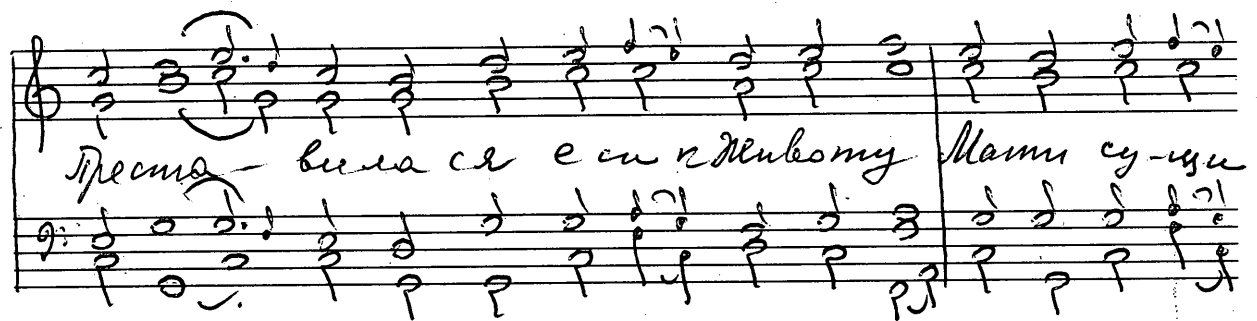 Преста - вила ся е си к Животу Мати су-щи